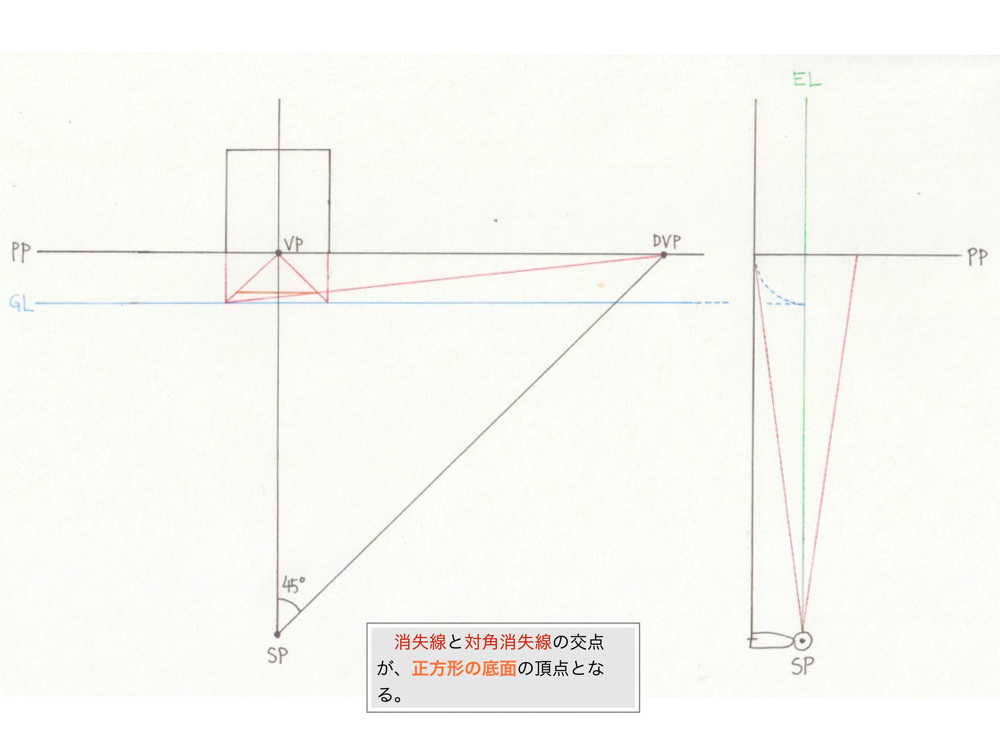 EL
PP
VP
DVP
PP
GL
45°
SP
SP
消失線と対角消失線の交点
が、正方形の底面の頂点とな
る。